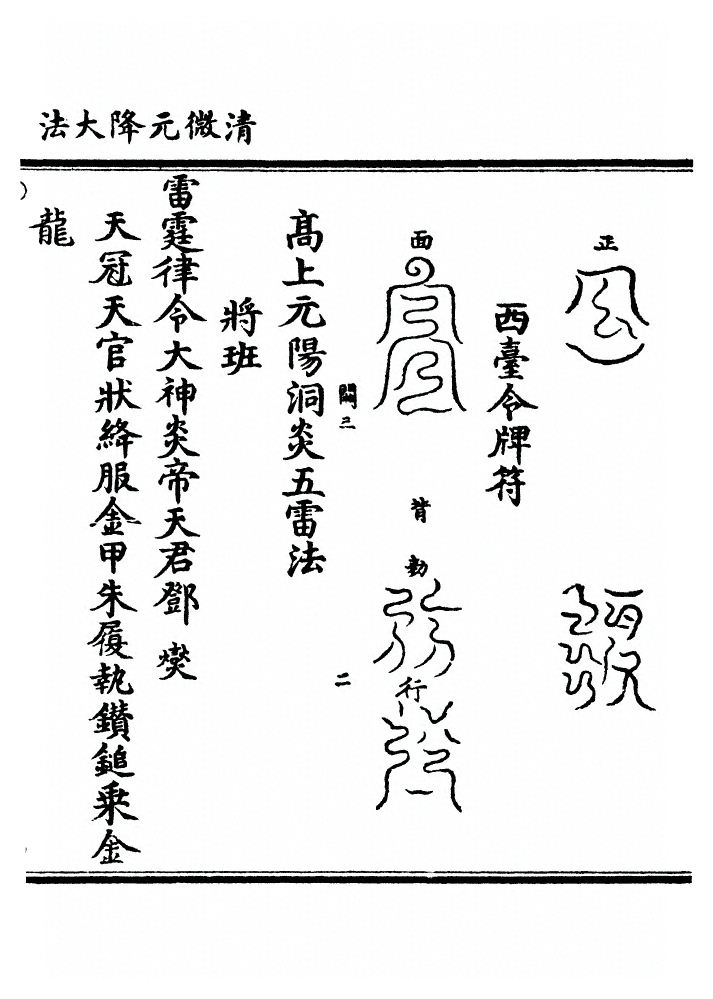 清微元降大法
正
西臺令牌符
面
背
勅
行
闕三
二
高上元陽洞炎五雷法
將班
雷霆律令大神炎帝天君鄧 爕
天冠天官狀絳服金甲朱履執鑽鎚乗金
龍